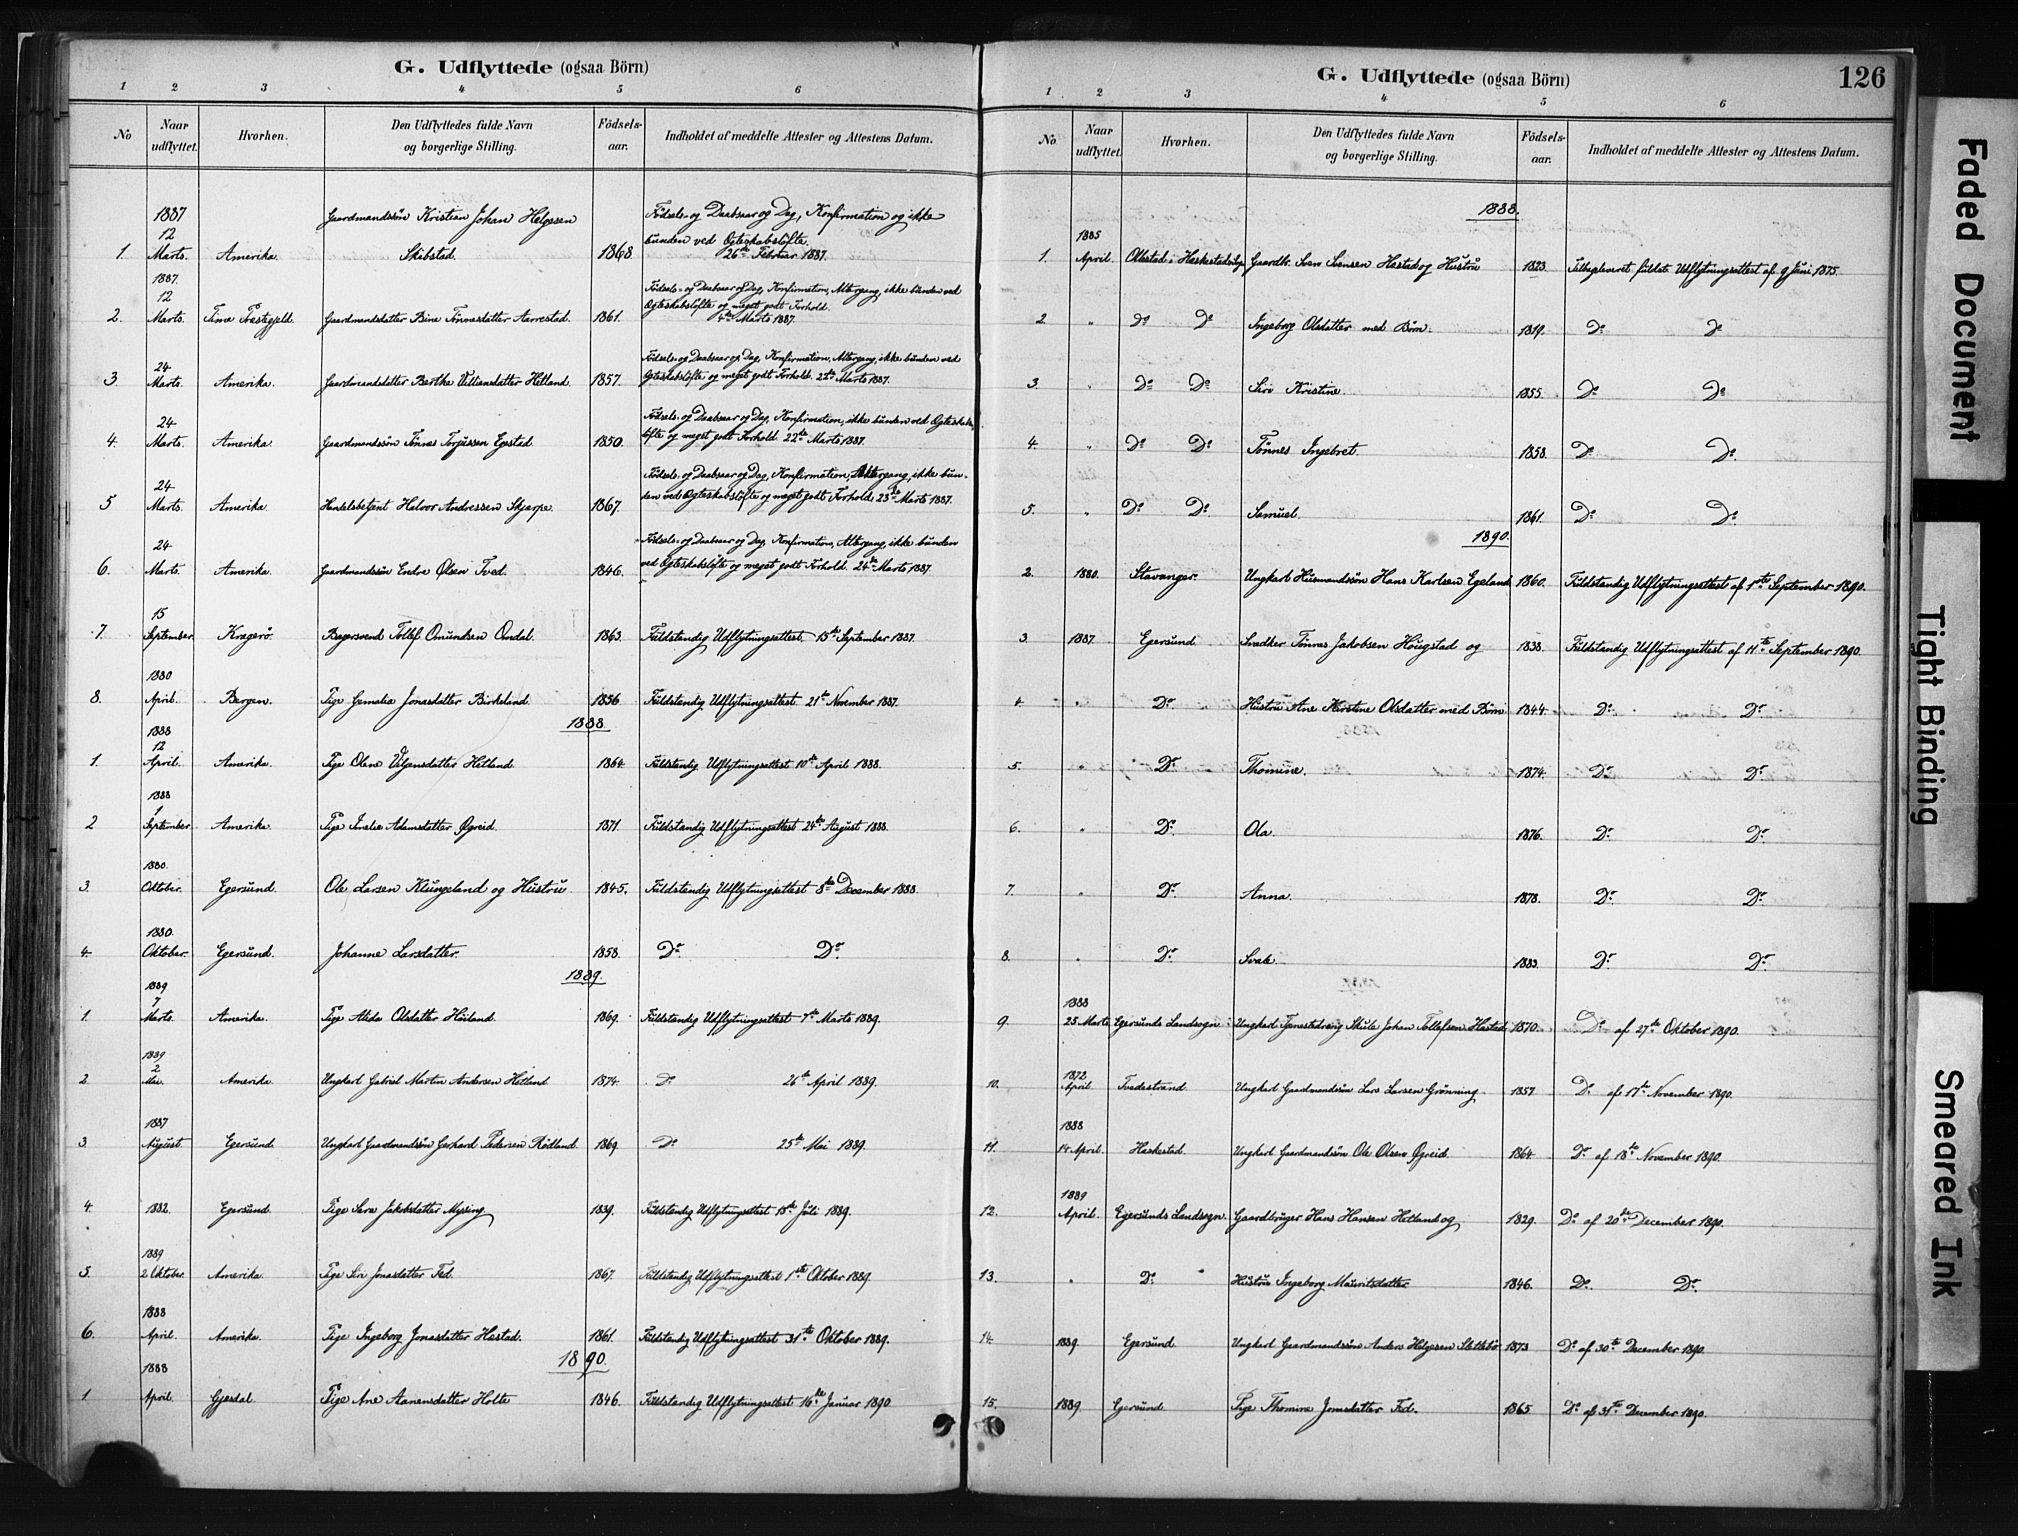 G. Udflyttede (ogsaa Börn)
1 2 3 4 5 6
No Naar udflyttet. Hvorhen. Den Udflyttedes fulde Navn og borgerlige Stilling. Födsels-aar. Indholdet af meddelte Attester og Attestens Datum.
1887
12 Gaardmandssøn Kristian Johan Helgesen Födsels- og Daabsaar og Dag, Konfirmation og ikke
bunden ved Ægteskabsløfte.
1. Marts. Amerika. Skibstad. 1868 26de Februar 1887.
1887.
12 Födsels- og Daabsaar og Dag, Konfirmation, Altergang, ikke bunden ved
Ægteskabsløfte og meget godt Forhold.
2. Marts. Time Præstegjeld. Gaardmandsdatter Bine Tønnesdatter Aarrestad. 1861. 4de Marts 1887.
24 Födsels- og Daabsaar og Dag, Konfirmation, Altergang, ikke bunden ved
3. Marts. Amerika. Gaardmandsdatter Berthe Villiamsdatter Hetland. 1857. Ægteskabsløfte og meget godt Forhold. 22de Marts 1887.
24 Födsels- og Daabsaar og Dag, Konfirmation, ikke bunden ved Ægteskabs-
4. Marts. Amerika. Gaardmandssøn Tønnes Torjussen Egestad. 1850. løfte og meget godt Forhold. 22de Marts 1887.
24 Födsels- og Daabsaar og Dag, Konfirmation, Altergang, ikke bun-
5 Marts. Amerika. Handelsbetjent Halvor Andreassen Skjerpe. 1867. den ved Ægteskabsløfte og meget godt Forhold. 23de Marts 1887.
24 Födsels- og Daabsaar og Dag, Konfirmation, Altergang, ikke bunden
6. Marts. Amerika. Gaardmandssøn Endre Olsen Tved. 1846. ved Ægteskabsløfte og meget godt Forhold. 24de Marts 1887.
15
7. September. Kragerö. Bagersvend Tollef Omundsen Omdal. 1863. Fuldstændig Udflytningsattest. 15de September 1887.
1880
8. April. Bergen. Pige Jonasdatter Birkeland 1856 Fuldstændig Udflytningsattest. 21de November 1887.
1888
1888
12
1. April. Amerika. Pige Olene Hetland 1864. Fuldstændig Udflytningsattest 10de April 1888.
1888
1
2 September. Amerika. Pige Adamsdatter Øgreid. 1871. Fuldstændig Udflytningsattest 24de August 1888.
1880.
3. Oktober. Egersund. Ole Larsen Klungeland og Hustru. 1845. Fuldstændig Udflytningsattest 8de December 1888.
1880.
4. Oktober. Egersund. Johanne Larsdatter. 1858. Do Do
1889.
1889
7
1. Marts. Amerika. Pige Alida Olsdatter Høiland. 1869. Fuldstændig Udflytningsattest 7de Marts 1889.
1889
2
2. Mai. Amerika Ungkarl Gabriel Martin Andersen Hetland 1874. Do 26de April 1889.
1887
3 August. Egersund. Ungkarl Gaardmandssøn Gerhard Pedersen Rødland. 1869. Do 25de Mai 1889.
4. 1882. Egersund. Pige Sara Jakobsdatter Myssing 1839. Fuldstændig Udflytningsattest 15de Juli 1889.
1889
5. 2 Oktober. Amerika. Pige Siri Jonasdatter Fed. 1867. Fuldstændig Udflytningsattest 1ste Oktober 1889.
1888
6. April. Amerika. Pige Ingeborg Jonasdatter Hæstad. 1861. Fuldstændig Udflytningsattest 31te Oktober 1889.
1890.
1888
1 April. Gjesdal. Pige Ane Aanensdatter Holte 1846. Fuldstændig Udflytningsattest 16de Januar 1890
G. Udflyttede (ogsaa Börn) 126
1 2 3 4 5 6
No Naar udflyttet. Hvorhen. Den Udflyttedes fulde Navn og borgerlige Stilling. Födsels-aar. Indholdet af meddelte Attester og Attestens Datum.
1888.
1885
1. April. Ollestad i Gaardbr. Sven Svensen Hæstad og Hustru 1823. fuldst. Udflytningsattest af 9 Juni 1875.
2. " Do Do Ingeborg Olsdatter med Børn. 1819. Do Do
3. " Do Do Siri Kristine. 1855. Do Do
4. " Do Do Tønnes Ingebret. 1858. Do Do
5. " Do Do Samuel. 1861. Do Do
1890.
2. 1880. Stavanger. Ungkarl Husmandssøn Hans Karlsen Egeland 1860. Fuldstændig Udflytningsattest af 1ste September 1890.
3. 1887. Egersund Snedker Tønnes Jakobsen Hougstad og 1838. Fuldstændig Udflytningsattest af 11te September 1890.
4. " Do Hustru Ane Kirstine Olsdatter med Børn 1844. Do Do
5. " Do Thomine. 1874. Do Do
6. " Do Ola. 1876. Do Do
7. " Do Anna. 1878. Do Do
8. " Do 1883. Do Do
1888
9. 25 Marts Egersunds Landsogn Ungkarl Tjenestedreng Skule Johan Tollefsen Hæstad 1870. Do af 27de Oktober 1890.
1872
10. April Tvedestrand Ungkarl Gaardmandssøn Lars Larsen Grønning 1857 Do af 17de November 1890.
1888
11. 14 April. Heskestad. Ungkarl Gaardmandssøn Ole Olsen Øgreid. 1864. Do af 18de November 1890.
1889
12. April. Egersunds Landsogn. Gaardbruger Hans Hansen Hetland og 1829. Do af 20de December 1890.
13. " Do " Hustru Ingeborg Mauritsdatter 1846. Do Do
14. 1889. Egersund Ungkarl Gaardmandssøn Anders Helgesen Slettebø 1873 Do af 30te December 1890.
15. 1889. Egersund. Pige Thomine Jonasdatter Fed. 1865 Do af 31te December 1890.
Faded Document
Tight Binding
Smeared Ink